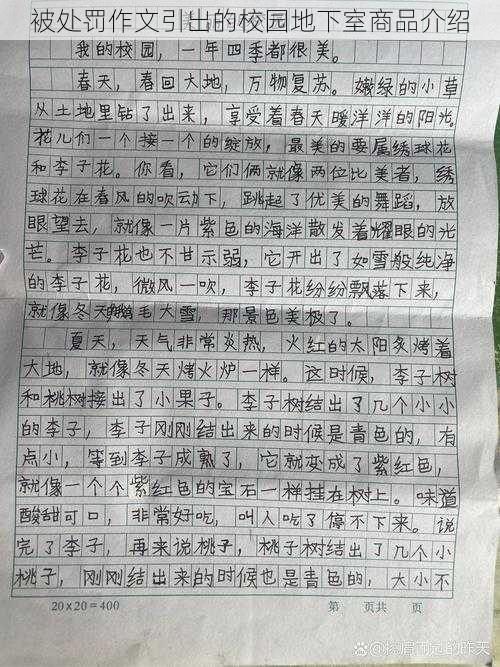 被处罚作文引出的校园地下室商品介绍
我的校园，一年四季都很美。
春天，春回大地，万物复苏。嫩绿的小草
从土地里钻了出来，享受着春天暖洋洋的阳光。
花儿们一个接一个的绽放，最美的要属绣球花
和李子花。你看，它们俩就像两位比美者，绣
球花在春风的吹动下，跳起了优美的舞蹈，放
眼望去，就像一片紫色的海洋散发着耀眼的光
芒。李子花也不甘示弱，它开出了如雪般纯净
的李子花，微风一吹，李子花纷纷飘落下来，
就像冬天鹅毛大雪，那景色美极了。
夏天，天气非常炎热，火红的太阳炙烤着
大地，就像冬天烤火炉一样。这时候，李子树
和桃树接出了小果子。李子树结出了几个小小
的李子，李子刚刚结出来的时候是青色的，有
点小，等到李子成熟了，它就变成了紫红色，
就像一个个紫红色的宝石一样挂在树上。味道
酸甜可口，非常好吃，叫人吃了停不下来。说
完了李子，再来说桃子，桃子树结出了几个小
桃子，刚刚结出来的时候也是青色的，大小不
20×20=400 第 页共 页